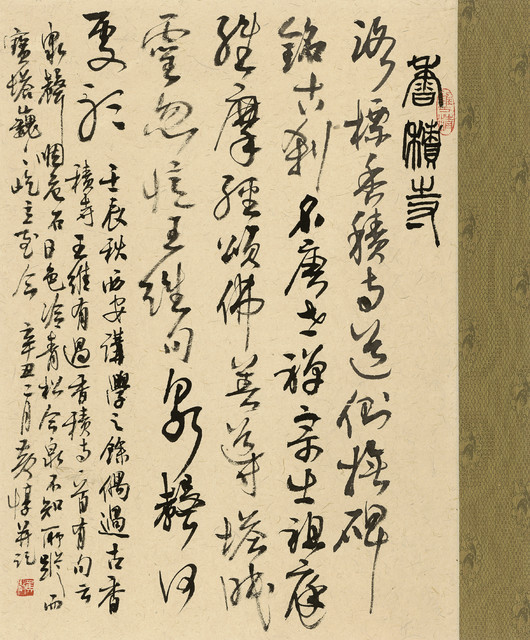 香積寺
路標香積寺道側撫碑
銘古刹名唐世禪宗生祖庭
維摩經頌佛善導塔成
靈忽憶王維句泉聲何
更聆
壬辰秋西安講學之餘偶過古香
積寺王維有過香積寺一首有句云
泉聲咽危石日色冷青松今泉不知所踪而
寶塔巍巍屹立至今辛丑二月黃惇并記